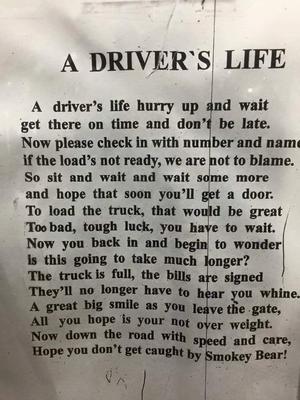 A DRIVER`S LIFE
A driver's life hurry up and wait
get there on time and don't be late.
Now please check in with number and name
if the load's not ready, we are not to blame.
So sit and wait and wait some more
and hope that soon you'll get a door.
To load the truck, that would be great
Too bad, tough luck, you have to wait.
Now you back in and begin to wonder
is this going to take much longer?
The truck is full, the bills are signed
They'll no longer have to hear you whine.
A great big smile as you leave the gate,
All you hope is your not over weight.
Now down the road with speed and care,
Hope you don't get caught by Smokey Bear!